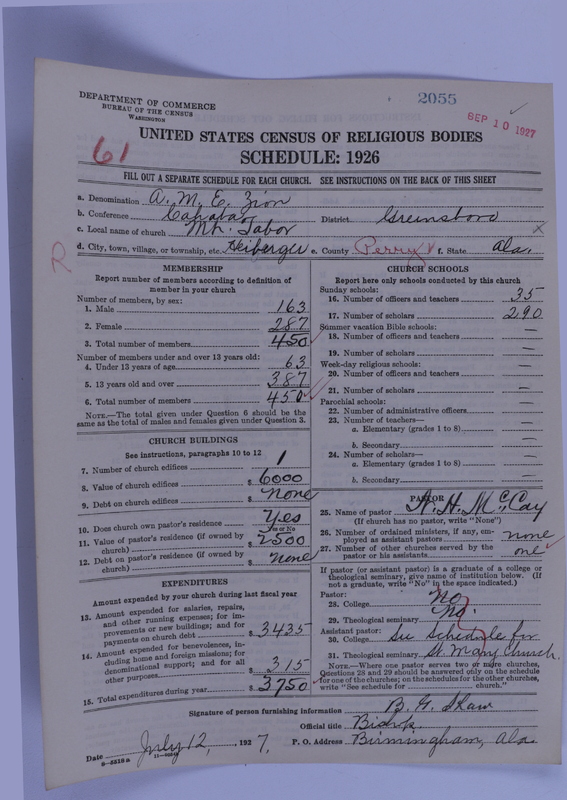 DEPARTMENT OF COMMERCE
BUREAU OF THE CENSUS
WASHINGTON
2055
SEP 10 1927
61
UNITED STATES CENSUS OF RELIGIOUS BODIES
SCHEDULE: 1926
FILL OUT A SEPARATE SCHEDULE FOR EACH CHURCH. SEE INSTRUCTIONS ON THE BACK OF THIS SHEET
a. Denomination A. M. E. Zion
b. Conference Cahaba District Greensboro
c. Local name of church Mt. Tabor
d. City, town, village, or township, etc. Heiberger e. County Perry f. State Ala.
R
MEMBERSHIP
Report number of members according to definition of member in your church
Number of members, by sex:
1. Male 163
2. Female 287
3. Total number of members 450
Number of members under and over 13 years old:
4. Under 13 years of age 63
5. 13 years old and over 387
6. Total number of members 450
NOTE.—The total given under Question 6 should be the same as the total of males and females given under Question 3.
CHURCH BUILDINGS
See instructions, paragraphs 10 to 12
7. Number of church edifices 1
8. Value of church edifices $ 6000
9. Debt on church edifices $ none
10. Does church own pastor's residence Yes
Yes or No
11. Value of pastor's residence (if owned by church) $ 2500
12. Debt on pastor's residence (if owned by church) $ none
EXPENDITURES
Amount expended by your church during last fiscal year
13. Amount expended for salaries, repairs, and other running expenses; for improvements or new buildings; and for payments on church debt $ 3435
14. Amount expended for benevolences, including home and foreign missions; for denominational support; and for all other purposes $ 315
15. Total expenditures during year $ 3750
CHURCH SCHOOLS
Report here only schools conducted by this church
Sunday schools:
16. Number of officers and teachers 35
17. Number of scholars 290
Summer vacation Bible schools:
18. Number of officers and teachers —
19. Number of scholars —
Week-day religious schools:
20. Number of officers and teachers —
21. Number of scholars —
Parochial schools:
22. Number of administrative officers —
23. Number of teachers—
a. Elementary (grades 1 to 8) —
b. Secondary —
24. Number of scholars—
a. Elementary (grades 1 to 8) —
b. Secondary —
PASTOR
25. Name of pastor H. H. McCay
(If church has no pastor, write "None")
26. Number of ordained ministers, if any, employed as assistant pastors none
27. Number of other churches served by the pastor or his assistants one
If pastor (or assistant pastor) is a graduate of a college or theological seminary, give name of institution below. (If not a graduate, write "No" in the space indicated.)
Pastor:
28. College No
29. Theological seminary No.
Assistant pastor:
30. College See schedule for
31. Theological seminary St. Mary Church.
NOTE.—Where one pastor serves two or more churches, Questions 28 and 29 should be answered only on the schedule for one of the churches; on the schedule for the other churches, write "See schedule for ________ church."
Signature of person furnishing information B. G. Shaw
Official title Bishop
Date July 12, 1927. P. O. Address Birmingham, Ala.